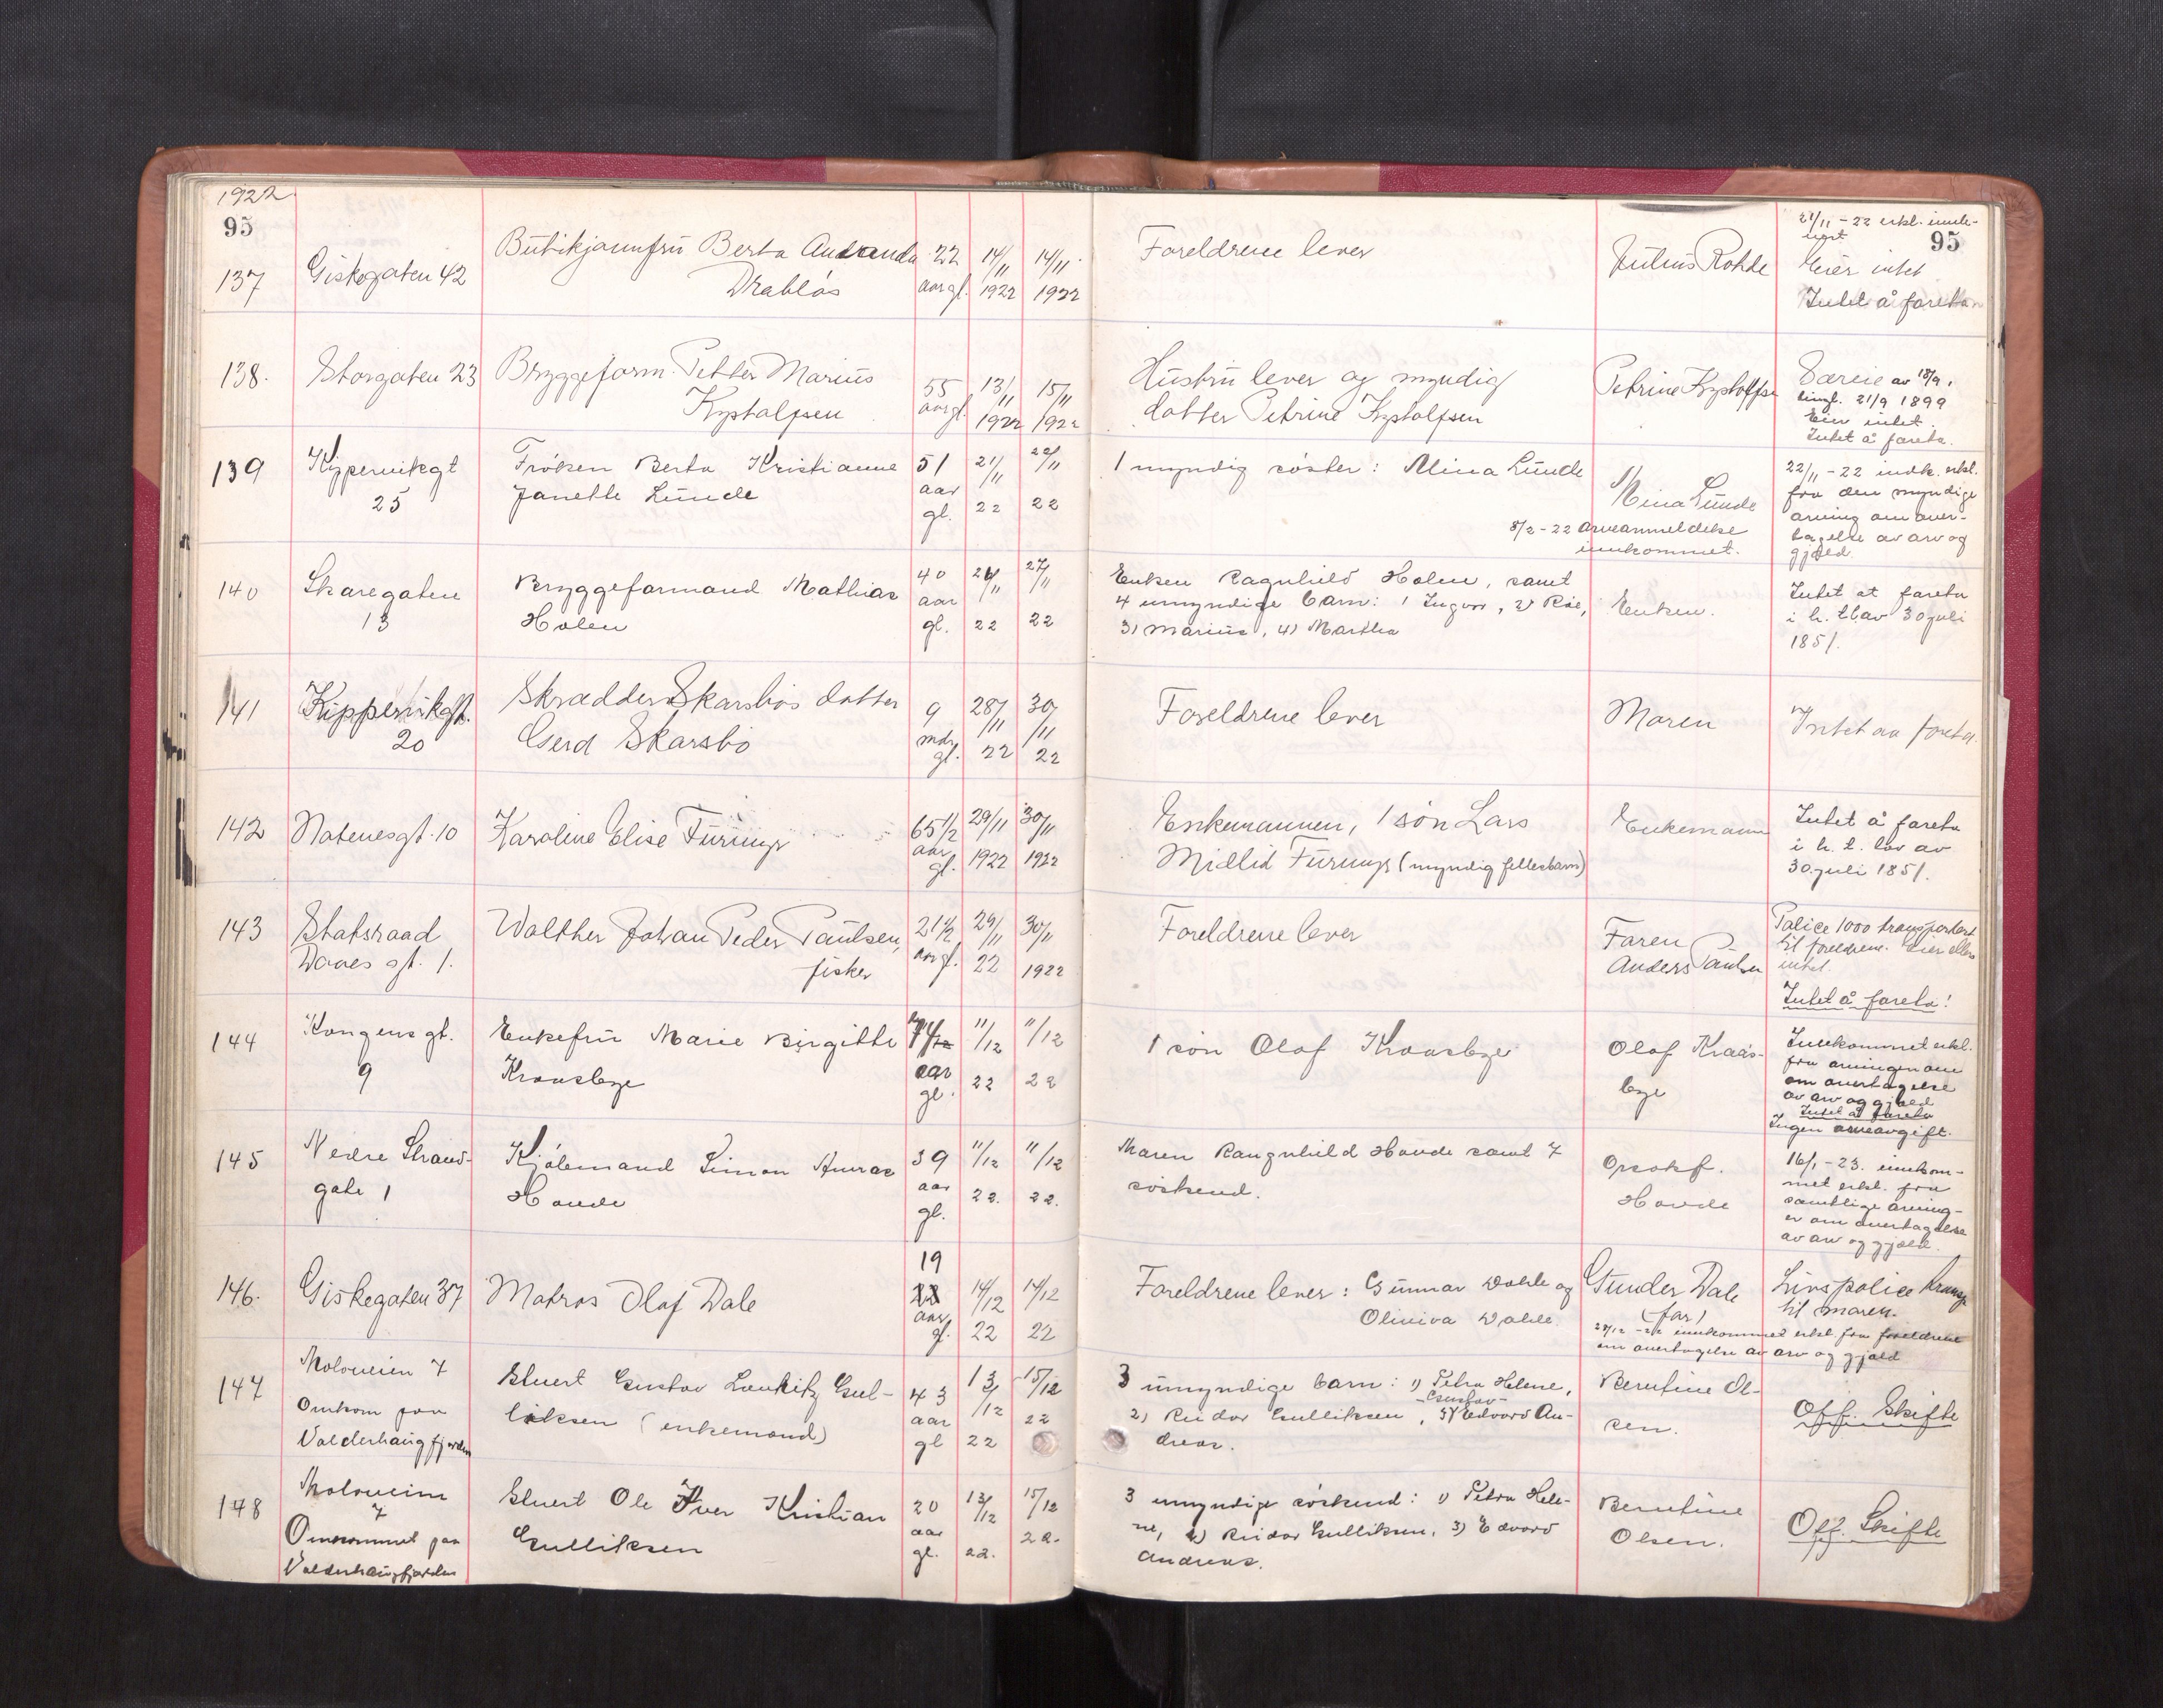 1922
95
95
137
Giskegaten 42
Butikjomfru Berta
Drabløs
22
aar gl.
14/11
1922
14/11
1922
Foreldrene lever
Julius Rohde
21/11 - 22 erkl. innle-
vert
Eier intet
Intet å foreta
138.
Storgaten 23
Bryggeform. Petter Marius
Krystofsen
55
aar gl.
13/11
1922
15/11
1922
Hustru lever og myndig
datter Petrine Krystofsen
Petrine
Særeie av 18/9,
tingl. 21/9 1899
Eier intet.
Intet å foreta.
139
Kippervikgt
25
Frøken Berta Kristianne
Janette Lunde
51
aar
gl.
21/11
22
22/11
22
1 myndig søster: Mina Lunde
Mina Lunde
8/2 - 22 arveanmeldelse
innkommet.
22/11 - 22 indk. erkl.
fra den myndige
arving om over-
tagelse av arv og
gjæld.
140
Skaregaten
13
Bryggeformand Mathias
Holen
40
aar
gl.
26/11
22
27/11
22
Enken Ragnhild Holen, samt
4 umyndige barn: 1 Ingvar, 2)
3) Marius, 4) Martha
Enken.
Intet at foreta
i h. t lav 30 juli
1851.
141
Kippervikgt.
20
Skrædder Skarsbøs datter
Gerd Skarsbø
9
mdr
gl.
28/11
22
30/11
22
Foreldrene lever
Moren
Intet aa foreta.
142
Notenesgt. 10
Karoline Elise Furmyr
65 1/2
aar
gl.
29/11
1922
30/11
1922
Enkemannen, 1 søn Lars
Midlid Furmyr (myndig fellesbarn)
Enkemann
Intet å foreta
i h. t. lov av
30. juli 1851.
143
Statsraad
Daaes gt. 1.
Walther Johan Peder Paulsen,
fisker
21 1/2
aar gl.
29/11
22
30/11
1922
Foreldrene lever
Faren
Anders Paulsen
Police 1000 transportert
til foreldrene. Eier ellers
intet.
Intet å foreta!
144
Kongens gt.
9
Enkefru Marie Birgitte
Kraasbye
aar
gl.
11/12
22
11/12
22
1 søn Olaf Kraasbye
Olaf Kraas-
bye
Innkommet erkl.
fra arvingen om
om overtagelse
av arv og gjæld
Intet å foreta
Ingen arveavgift.
145
Nedre Strand-
gate 1
Kjølemand Simon Andreas
Hovde
39
aar
gl.
11/12
22.
11/12
22.
Moren Raugnhild Hovde samt 7
søskend.
Hovde
16/1 - 23. innkom-
met erkl. fra
samtlige arving-
er om overtagelse
av arv og gjæld.
146.
Giskegaten 37
Matros Olaf Dale
19
22
aar
gl.
14/12
22
14/12
22
Foreldrene lever: Gunnar Dahle og
Oliviva Dahle.
Gunder Dale
(far)
Livspolice transp.
til moren.
27/12 - 22 innkommet erkl. fra foreldrene
om overtagelse av arv og gjæld
147
Moloveien 7
Omkom paa
Valderhaugfjorden
Stuert Gustav Laukitz Gul-
liksen (enkemand)
43
aar
gl
13/12
22
15/12
22
3 umyndige barn: 1) Petra Helene,
- Gustav -
2) Reidar Gulliksen, 3) Edvard An-
dreas.
Berntine Ol-
sen.
Off. Skifte
148
Moloveien
7
Omkommet paa
Valderhaugfjorden
Stuert Ole Iver Kristian
Gulliksen
20
aar
gl.
13/12
22.
15/12
22.
3 umyndige søskend: 1) Petra Hele-
ne, 2) Reidar Gulliksen, 3) Edvard
Andreas.
Berntine
Olsen.
Off. Skifte